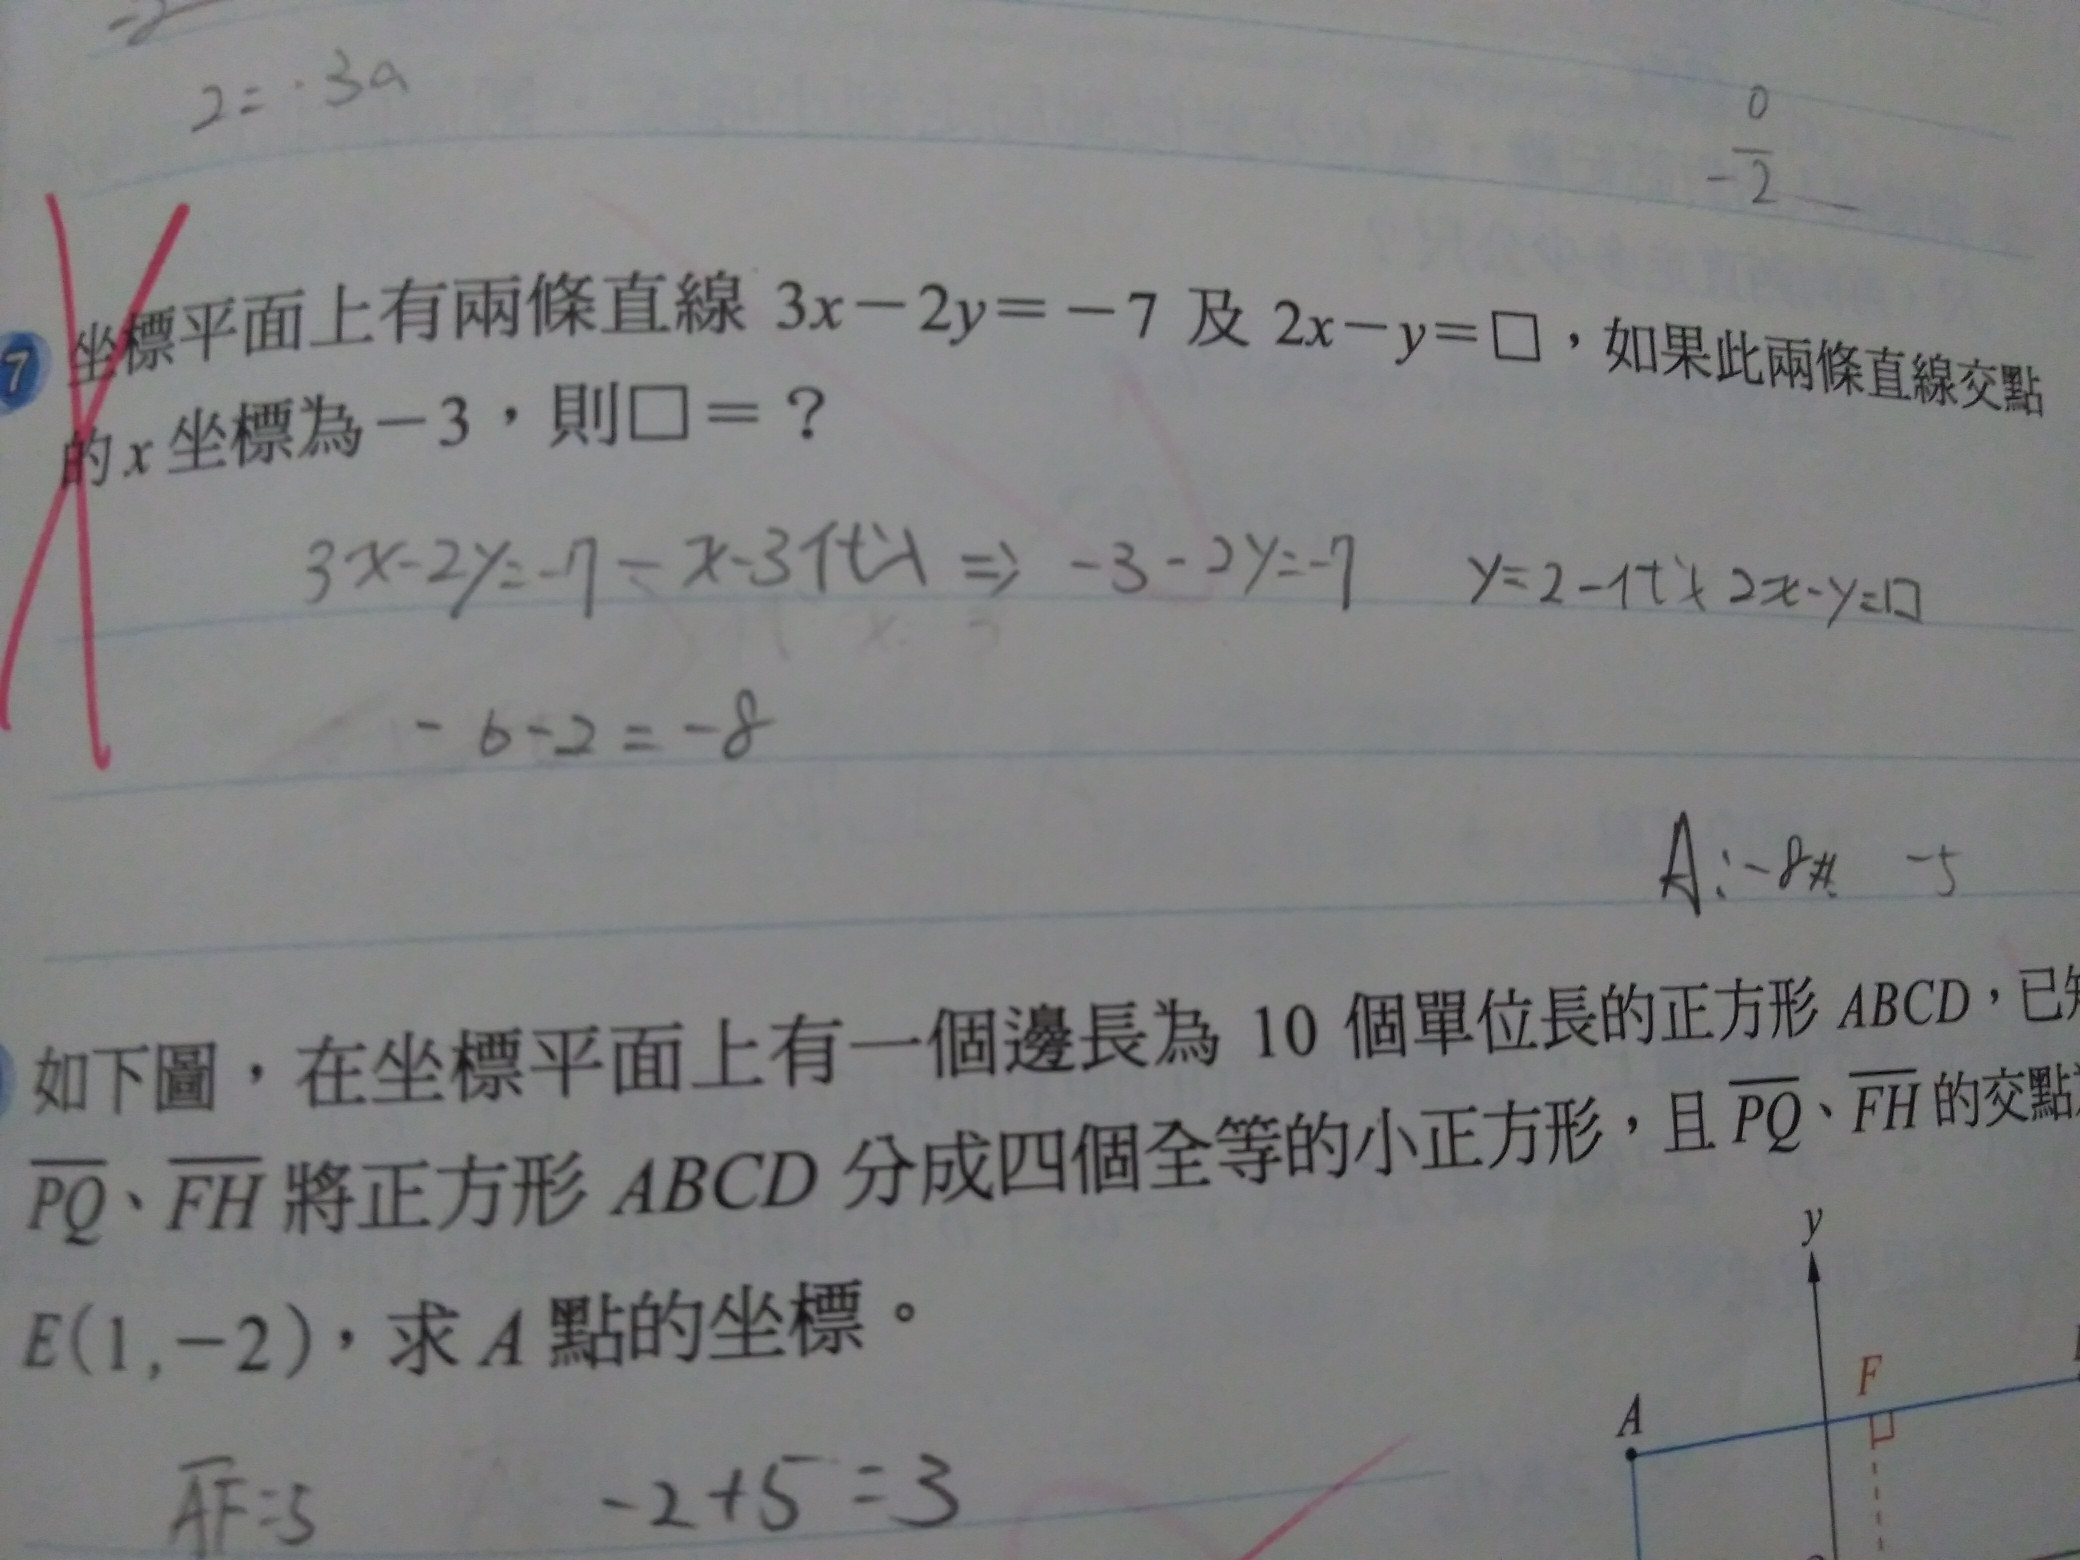 2=-3a
0
-2
7 坐標平面上有兩條直線 3x－2y＝－7 及 2x－y＝□，如果此兩條直線交點
的 x 坐標為－3，則□＝？
3x-2y=-7 - x-3代入 ⇒ -3-2y=-7 y=2-代入2x-y=□
-6-2=-8
A:-8# -5
如下圖，在坐標平面上有一個邊長為 10 個單位長的正方形 ABCD，已知
PQ、FH 將正方形 ABCD 分成四個全等的小正方形，且 PQ、FH 的交點
E(1,－2)，求 A 點的坐標。
y
F
A
AF=5 -2+5=3